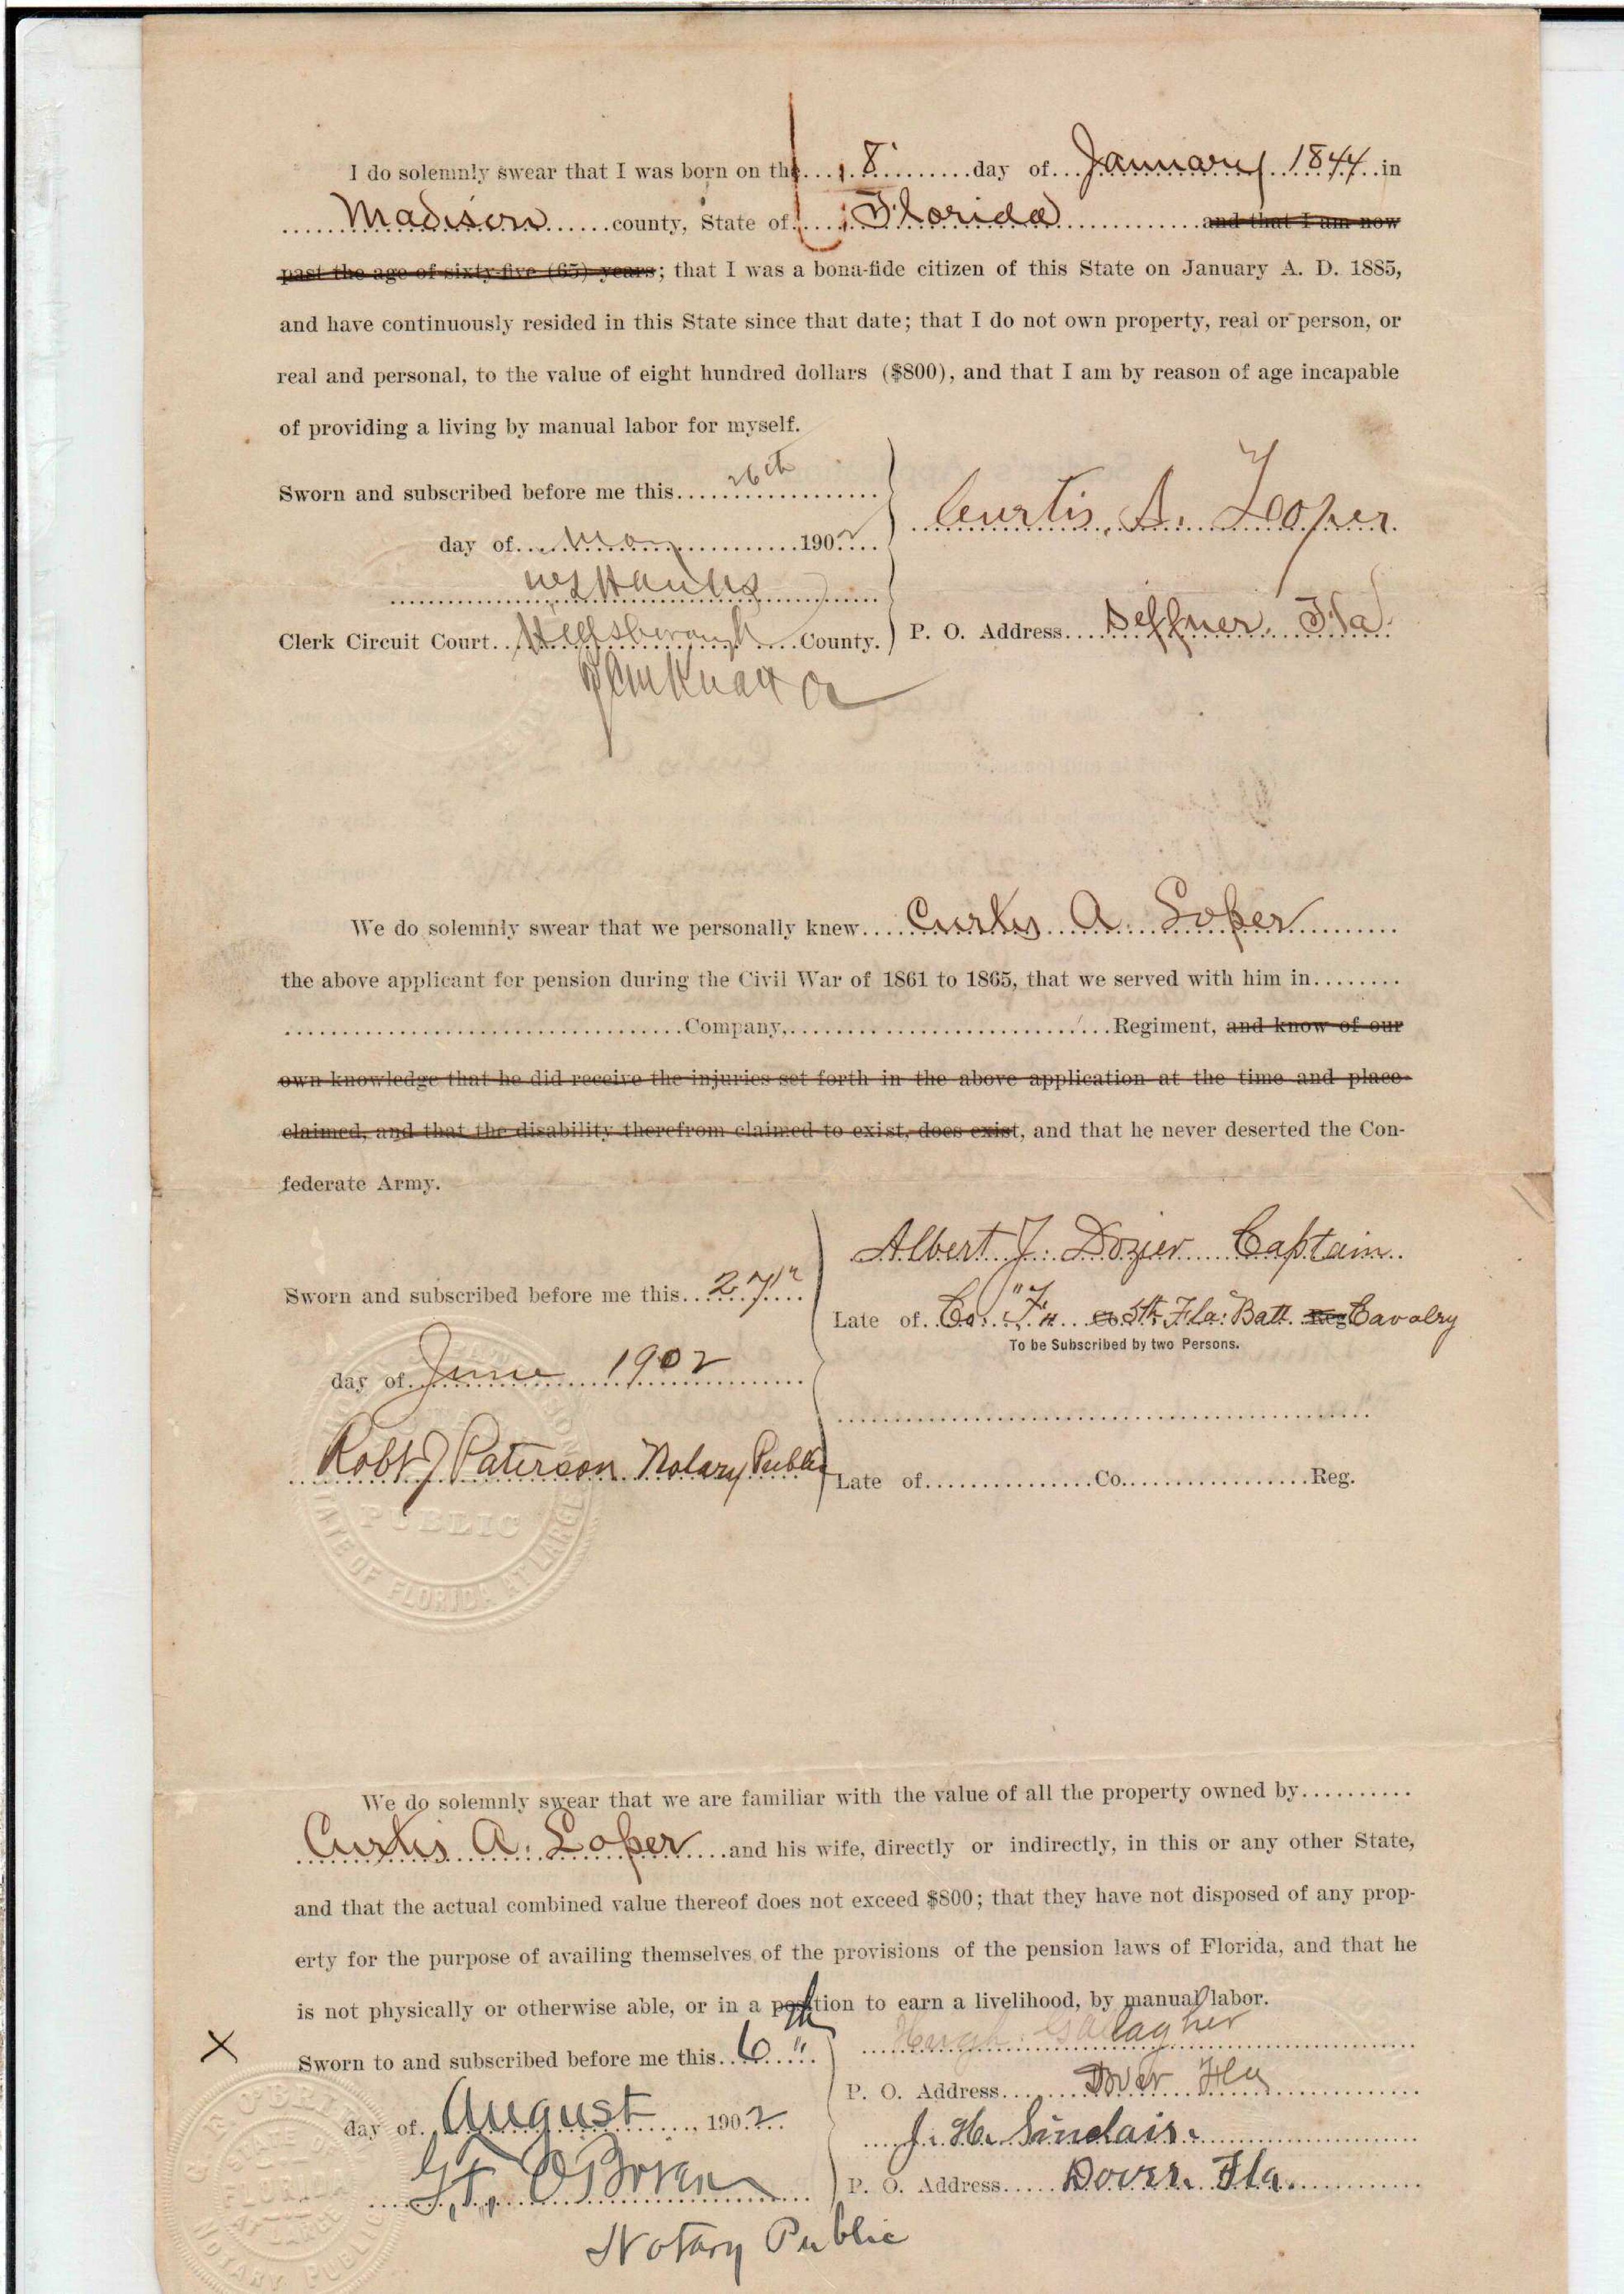 I do solemnly swear that I was born on the 8 day of January 1844 in
Madison county, State of Florida and that I am now
past the age of sixty-five (65) years; that I was a bona-fide citizen of this State on January A. D. 1885,
and have continuously resided in this State since that date; that I do not own property, real or person, or
real and personal, to the value of eight hundred dollars ($800), and that I am by reason of age incapable
of providing a living by manual labor for myself.
Sworn and subscribed before me this 26th
day of May 1902
Curtis. A. Loper
Clerk Circuit Court Hillsborough County.
P. O. Address Seffner, Fla.
We do solemnly swear that we personally knew Curtis A. Loper
the above applicant for pension during the Civil War of 1861 to 1865, that we served with him in
Company, Regiment, and know of our
own knowledge that he did receive the injuries set forth in the above application at the time and place
claimed, and that the disability therefrom claimed to exist, does exist, and that he never deserted the Con-
federate Army.
Albert J. Dozier Captain
Sworn and subscribed before me this 27th
Late of Co. "F" Co. 5th Fla: Batt. Reg Cavalry
To be Subscribed by two Persons.
day of June 1902
Robt J Paterson Notary Public
Late of Co. Reg.
PUBLIC
STATE OF FLORIDA AT LARGE
We do solemnly swear that we are familiar with the value of all the property owned by
Curtis A. Loper and his wife, directly or indirectly, in this or any other State,
and that the actual combined value thereof does not exceed $800; that they have not disposed of any prop-
erty for the purpose of availing themselves of the provisions of the pension laws of Florida, and that he
is not physically or otherwise able, or in a position to earn a livelihood, by manual labor.
Hugh Gallagher
X
Sworn to and subscribed before me this 6th
P. O. Address Dover Fla
day of August, 1902
J. H. Sinclair.
G. F. O'Brien
P. O. Address Dover. Fla.
Notary Public
G. F. O'BRIEN
STATE OF
FLORIDA
AT
LARGE
NOTARY PUBLIC